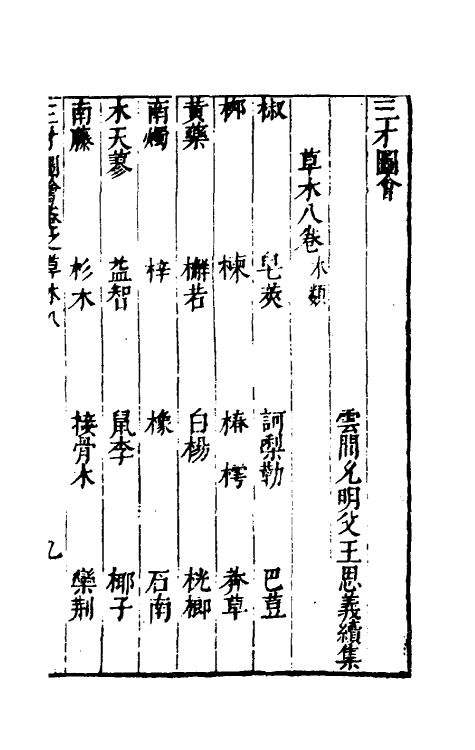 三才圖會
雲間允明父王思義續集
草木八卷 木類
椒 皂莢 訶梨勒 巴荳
柳 楝 椿 樗 莽草
黄藥 槲若 白楊 桄榔
南燭 梓 橡 石南
木天蓼 益智 鼠李 椰子
南藤 杉木 接骨木 欒荆
三才圖會卷之草木八 九